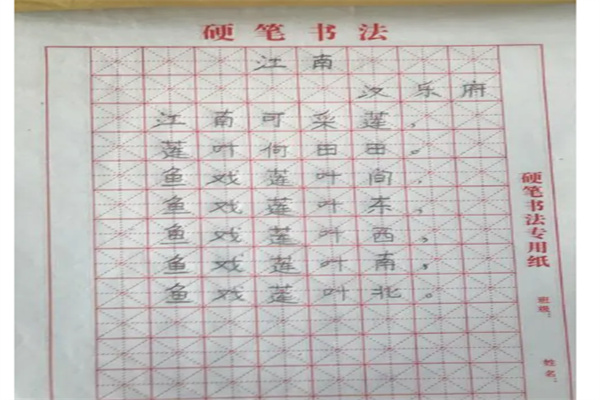 硬笔书法
江南
汉乐府
江南可采莲，
莲叶何田田。
鱼戏莲叶间，
鱼戏莲叶东，
鱼戏莲叶西，
鱼戏莲叶南，
鱼戏莲叶北。
硬笔书法专用纸
班级：
姓名：